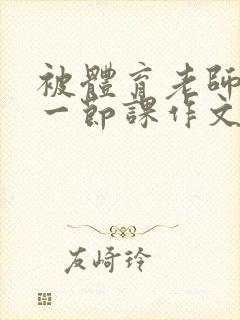 被體育老師
一節課作文
友崎玲